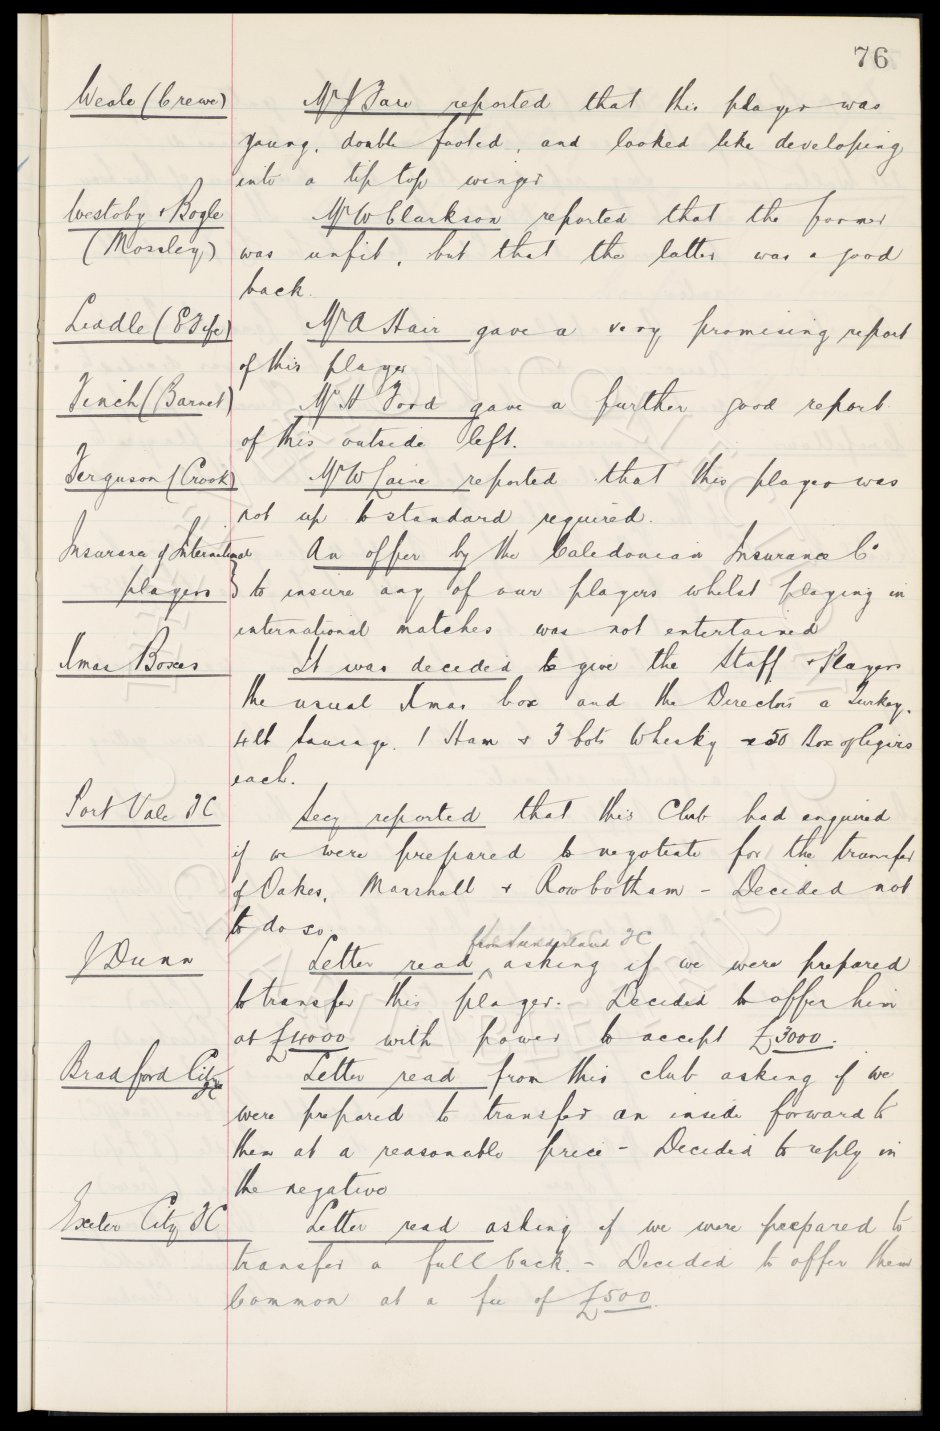 76
Weale (Crewe) Mr J Fare reported that this player was
young, double footed, and looked like developing
into a tip top winger
Westoby & Bogle Mr W Clarkson reported that the former
(Mossley) was unfit, but that the latter was a good
back.
Liddle (E Fife) Mr A Hair gave a very promising report
of this player
Finch (Barnet) Mr H Ford gave a further good report
of this outside left.
Ferguson (Crook) Mr W Laine reported that this player was
not up to standard required.
Insurance of International An offer by the Caledonian Insurance Co
players } to insure any of our players whilst playing in
international matches was not entertained
Xmas Boxes It was decided to give the Staff & Players
the usual Xmas box and the Directors a Turkey.
4lb Sausage. 1 Ham & 3 bots Whisky & 50 Box of Cigars
each.
Port Vale FC Secy reported that this Club had enquired
if we were prepared to negotiate for the transfer
of Oakes, Marshall & Rowbotham - Decided not
to do so.
from Sunderland FC
J Dunn Letter read ^ asking if we were prepared
to transfer this player. Decided to offer him
at £4000 with power to accept £3000.
Bradford City FC Letter read from this club asking if we
were prepared to transfer an inside forward to
them at a reasonable price - Decided to reply in
the negative
Exeter City FC Letter read asking if we were prepared to
transfer a full back. - Decided to offer them
Common at a fee of £500.